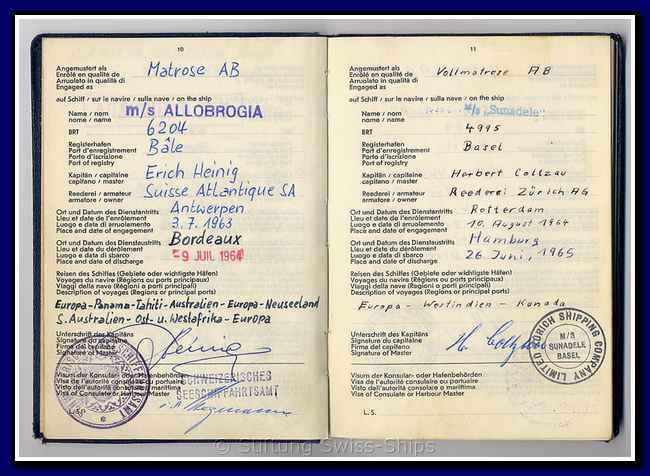 10
Angemustert als
Enrôlé en qualité de
Arruolato in qualità di
Engaged as
Matrose AB
auf Schiff / sur le navire / sulla nave / on the ship
Name / nom
nome / name
m/s ALLOBROGIA
BRT
6204
Registerhafen
Port d'enregistrement
Porto d'iscrizione
Port of registry
Bâle
Kapitän / capitaine
capitano / master
Erich Heinig
Reederei / armateur
armatore / owner
Suisse Atlantique SA
Ort und Datum des Dienstantritts
Lieu et date de l'enrôlement
Luogo e data di arruolamento
Place and date of engagement
Antwerpen
3.7.1963
Ort und Datum des Dienstaustritts
Lieu et date du dérôlement
Luogo e data di sbarco
Place and date of discharge
Bordeaux
-9 JUIL 1964
Reisen des Schiffes (Gebiete oder wichtigste Häfen)
Voyages du navire (Régions ou ports principaux)
Viaggi della nave (Regioni o porti principali)
Description of voyages (Regions or principal ports)
Europa-Panama-Tahiti-Australien-Europa-Neuseeland
S.Australien-Ost- u. Westafrika-Europa
Unterschrift des Kapitäns
Signature du capitaine
Firma del capitano
Signature of Master
Heinig
Visum der Konsular- oder Hafenbehörden
Visa de l'autorité consulaire ou portuaire
Visto dell'autorità consolare o marittima
Visa of Consulate or Harbour Master
SCHWEIZERISCHES
SEESCHIFFAHRTSAMT
L.S.
11
Angemustert als
Enrôlé en qualité de
Arruolato in qualità di
Engaged as
Vollmatrose AB
auf Schiff / sur le navire / sulla nave / on the ship
Name / nom
nome / name
M/s „Sunadele"
BRT
4995
Registerhafen
Port d'enregistrement
Porto d'iscrizione
Port of registry
Basel
Kapitän / capitaine
capitano / master
Herbert Coltzau
Reederei / armateur
armatore / owner
Reederei Zürich AG
Ort und Datum des Dienstantritts
Lieu et date de l'enrôlement
Luogo e data di arruolamento
Place and date of engagement
Rotterdam
10. August 1964
Ort und Datum des Dienstaustritts
Lieu et date du dérôlement
Luogo e data di sbarco
Place and date of discharge
Hamburg
26. Juni, 1965
Reisen des Schiffes (Gebiete oder wichtigste Häfen)
Voyages du navire (Régions ou ports principaux)
Viaggi della nave (Regioni o porti principali)
Description of voyages (Regions or principal ports)
Europa - Westindien - Kanada
Unterschrift des Kapitäns
Signature du capitaine
Firma del capitano
Signature of Master
H Coltzau
ZURICH SHIPPING COMPANY LIMITED
M/S
SUNADELE
BASEL
Visum der Konsular- oder Hafenbehörden
Visa de l'autorité consulaire ou portuaire
Visto dell'autorità consolare o marittima
Visa of Consulate or Harbour Master
L.S.
© Stiftung Swiss-Ships